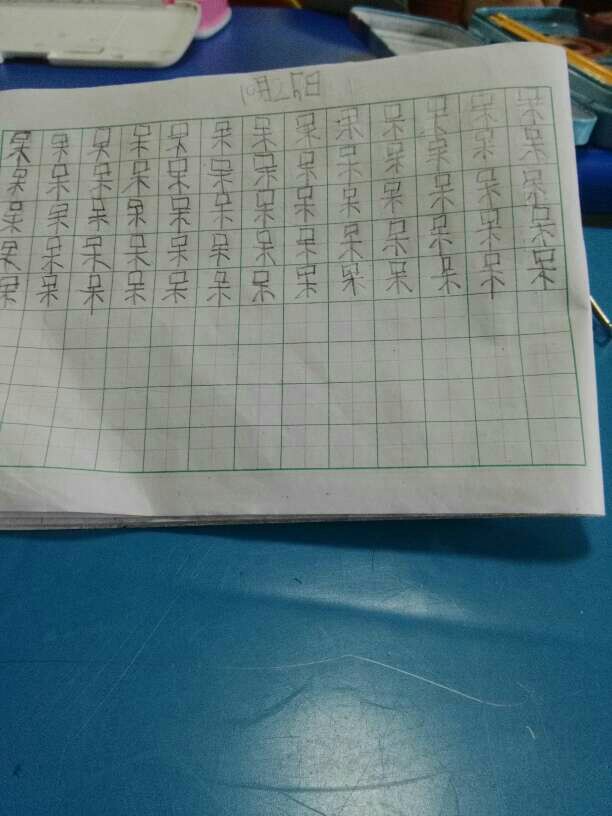 10月25日
呆呆呆呆呆呆呆呆呆呆呆呆呆
呆呆呆呆呆呆呆呆呆呆呆呆呆
呆呆呆呆呆呆呆呆呆呆呆呆呆
呆呆呆呆呆呆呆呆呆呆呆呆呆
呆呆呆呆呆呆呆呆呆呆呆呆呆